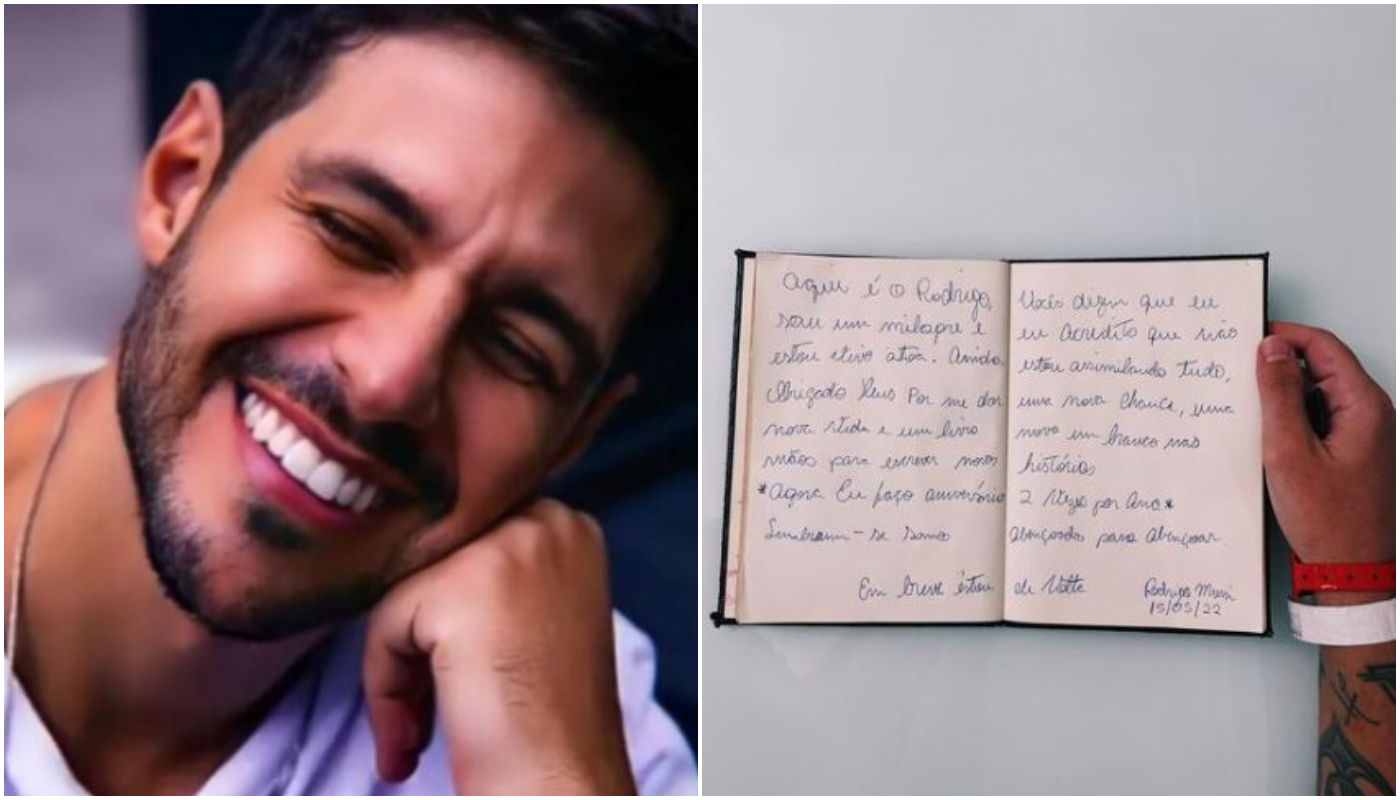 Aqui é o Rodrigo, Vocês dizem que eu
sou um milagre e eu acredito que não
estou vivo atoa. Ainda estou assimilando tudo,
Obrigado Deus Por me dar uma nova chance, uma
nova vida e um livro novo em branco nas
mãos para escrever novas histórias
*Agora Eu faço aniversário 2 Vezes por Ano*
Lembram-se somos abençoados para abençoar
Em breve estou de Volta Rodrigo Mussi
15/05/22